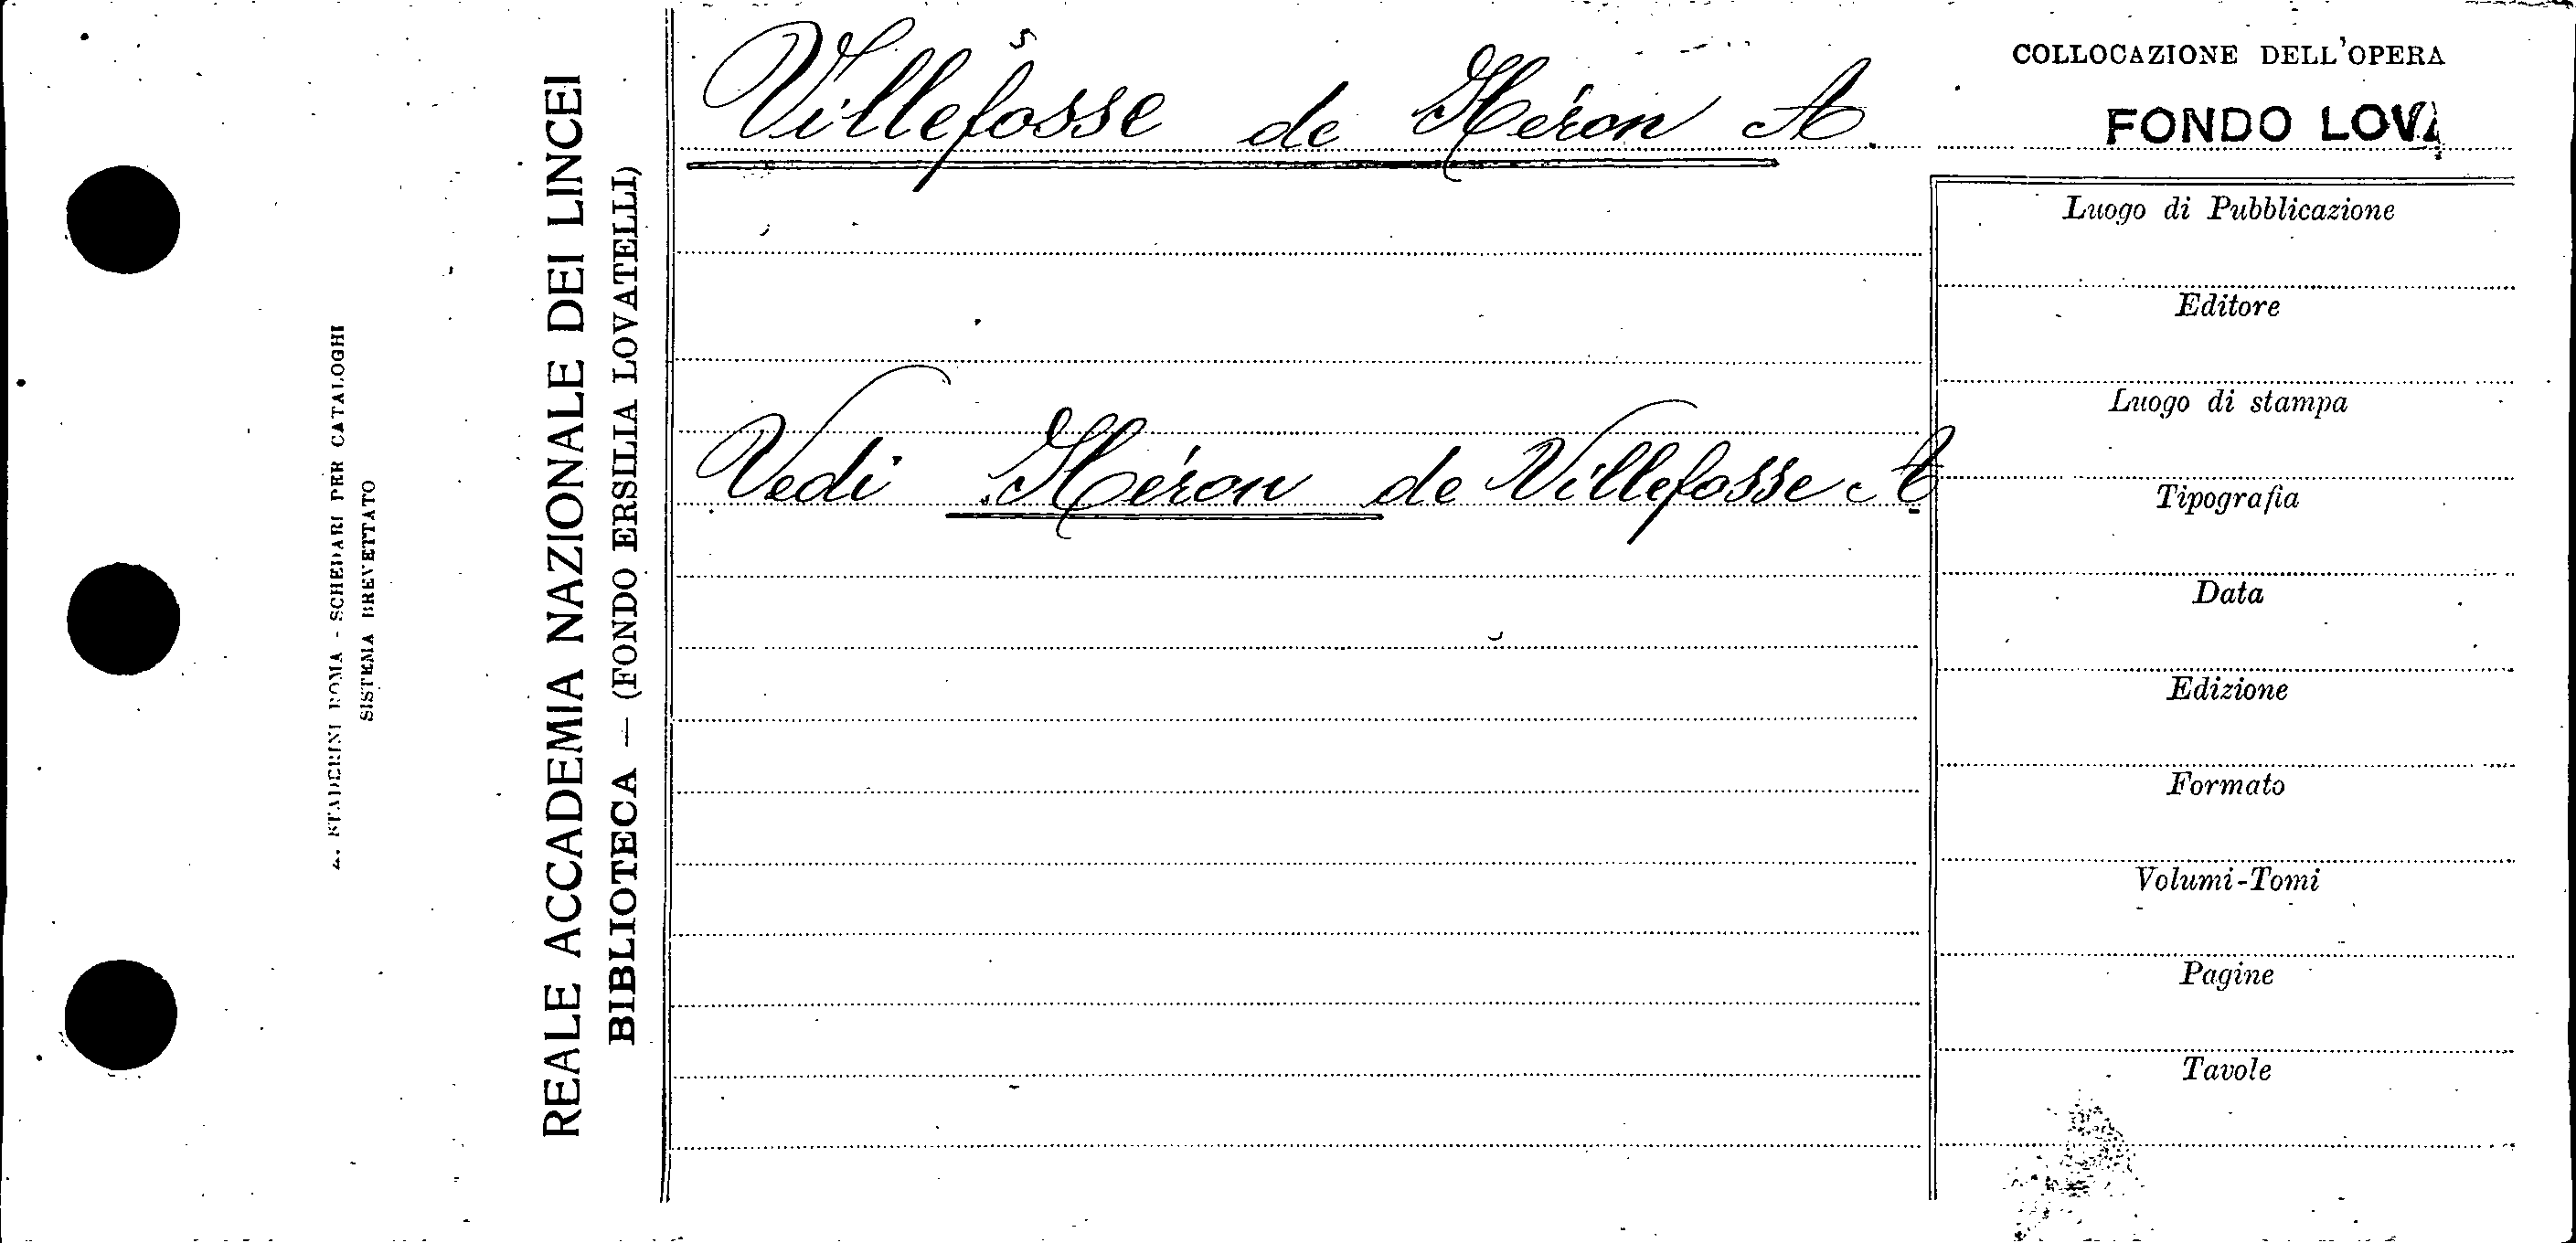 A. STADERINI ROMA - SCHEDARI PER CATALOGHI
SISTEMA BREVETTATO
REALE ACCADEMIA NAZIONALE DEI LINCEI
BIBLIOTECA — (FONDO ERSILIA LOVATELLI)
Villefosse de Héron A.
Vedi Héron de Villefosse A.
COLLOCAZIONE DELL'OPERA
FONDO LOVA
Luogo di Pubblicazione
Editore
Luogo di stampa
Tipografia
Data
Edizione
Formato
Volumi-Tomi
Pagine
Tavole